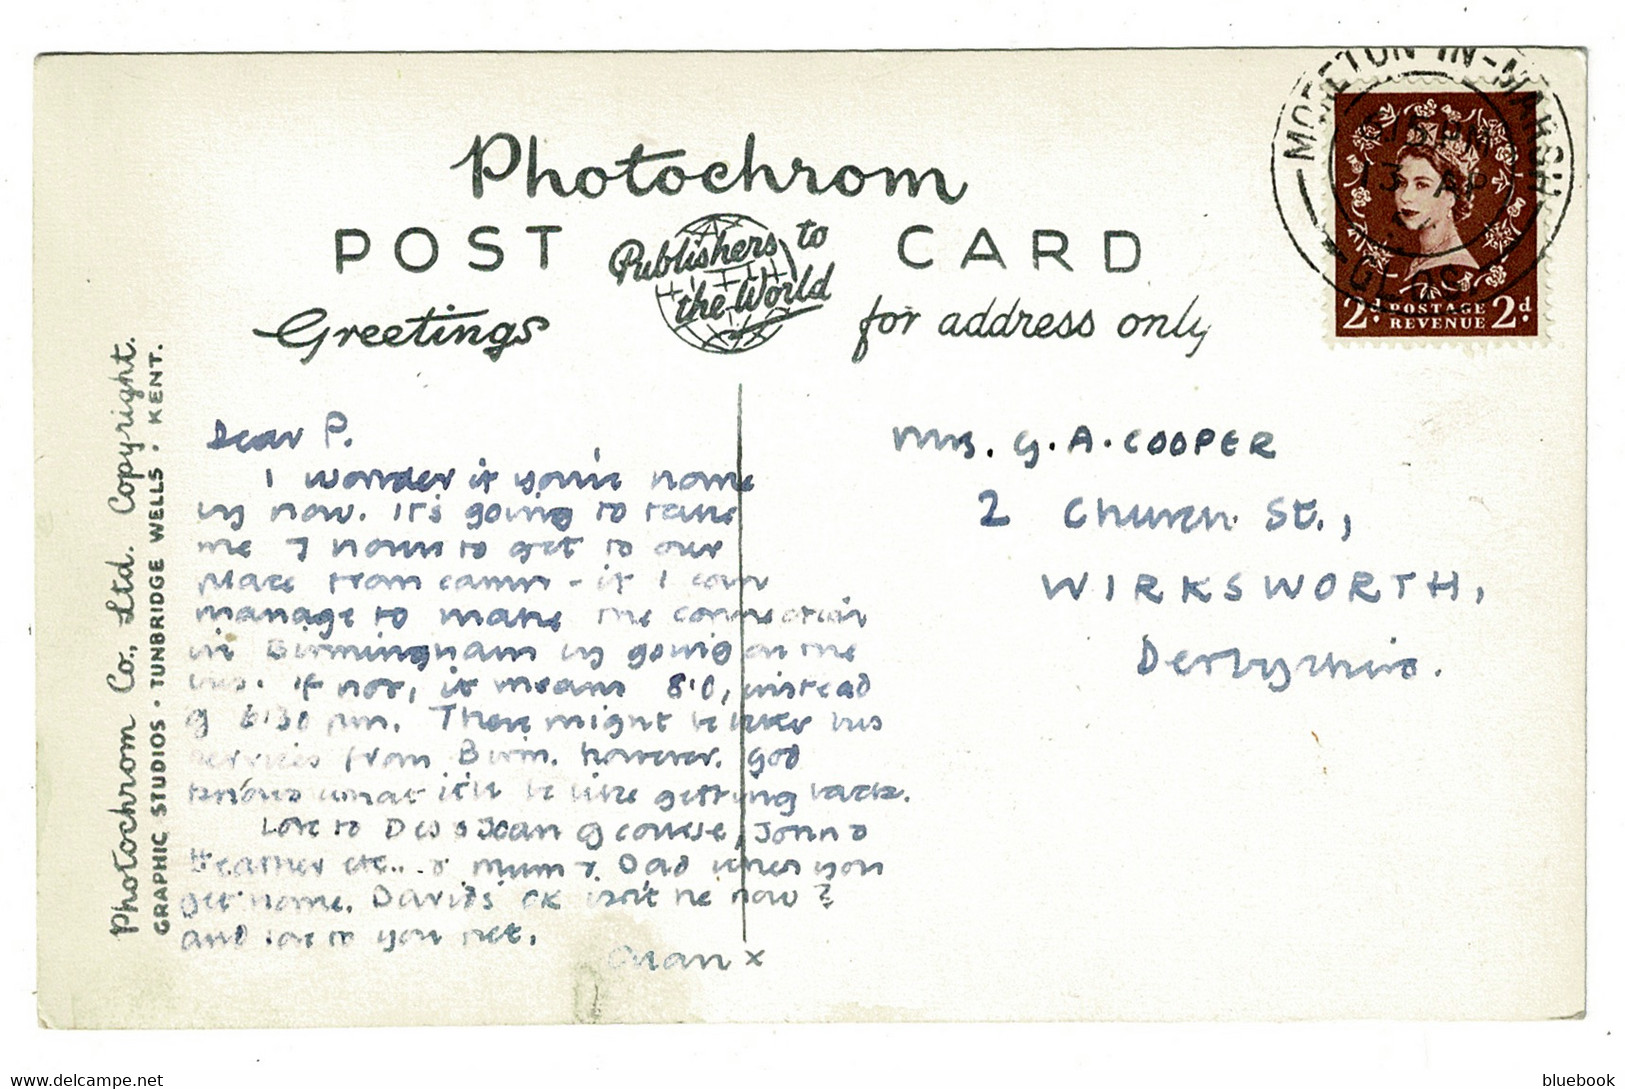 Photochrom
POST CARD
Publishers to
the World
Greetings
for address only
MORETON-IN-MARSH
15 PM
13 AP
GLOS
2d. POSTAGE 2d.
REVENUE
Photochrom Co., Ltd. Copyright.
GRAPHIC STUDIOS · TUNBRIDGE WELLS · KENT.
Dear P.
I wonder if you're home
now. It's going to take
me 7 hours to get to our
place from - if I can
manage to make the connection
in Birmingham by going on the
bus. If not, it means 8.0, instead
of 6.30 pm. There might be later bus
services from Birm. however. God
knows what it'll be like getting back.
Love to Des & Joan of course, John &
Heather etc... & Mum & Dad when you
get home. David's OK isn't he now?
and love to you
x
Mrs. G. A. COOPER
2 Church St.,
WIRKSWORTH,
Derbyshire.
bluebook
https://www.delcampe.net